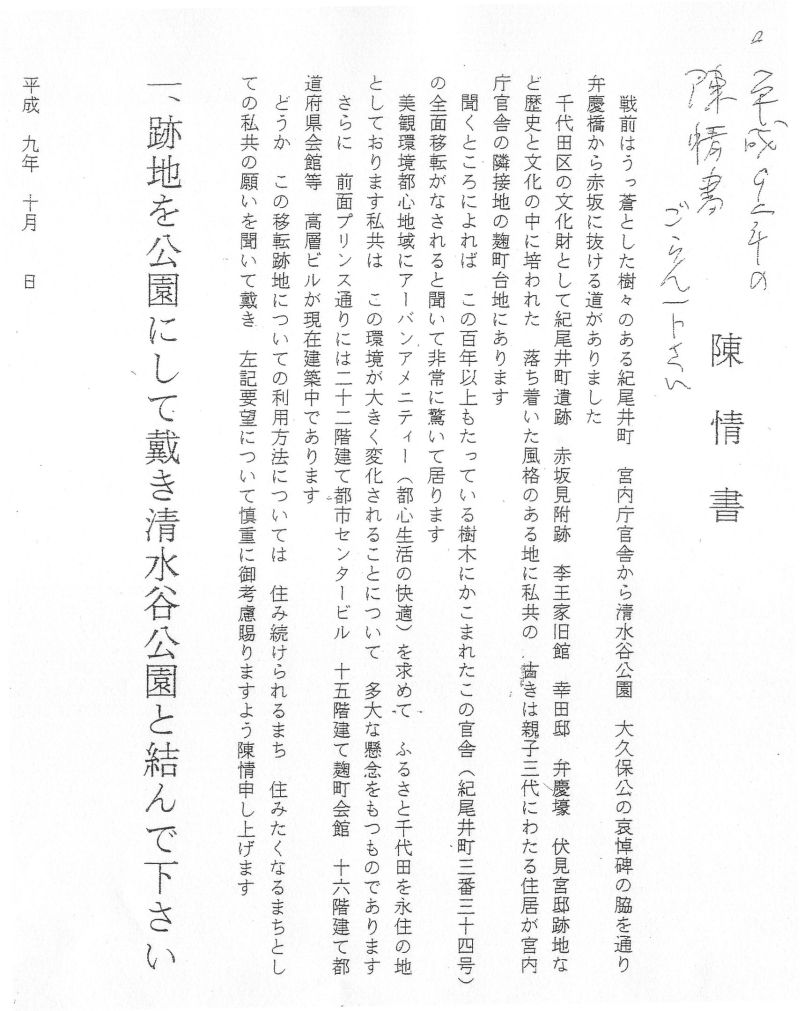 平成9年の
陳情書
ごらん下さい
陳情書
戦前はうっ蒼とした樹々のある紀尾井町　宮内庁官舎から清水谷公園　大久保公の哀悼碑の脇を通り
弁慶橋から赤坂に抜ける道がありました
千代田区の文化財として紀尾井町遺跡　赤坂見附跡　李王家旧館　幸田邸　弁慶壕　伏見宮邸跡地な
ど歴史と文化の中に培われた　落ち着いた風格のある地に私共の　きは親子三代にわたる住居が宮内
庁官舎の隣接地の麹町台地にあります
聞くところによれば　この百年以上もたっている樹木にかこまれたこの官舎（紀尾井町三番三十四号）
の全面移転がなされると聞いて非常に驚いて居ります
美観環境都心地域にアーバンアメニティー（都心生活の快適）を求めて　ふるさと千代田を永住の地
としております私共は　この環境が大きく変化されることについて　多大な懸念をもつものであります
さらに　前面プリンス通りには二十二階建て都市センタービル　十五階建て麹町会館　十六階建て都
道府県会館等　高層ビルが現在建築中であります
どうか　この移転跡地についての利用方法については　住み続けられるまち　住みたくなるまちとし
ての私共の願いを聞いて戴き　左記要望について慎重に御考慮賜りますよう陳情申し上げます
一、跡地を公園にして戴き清水谷公園と結んで下さい
平成　九年　十月　　日